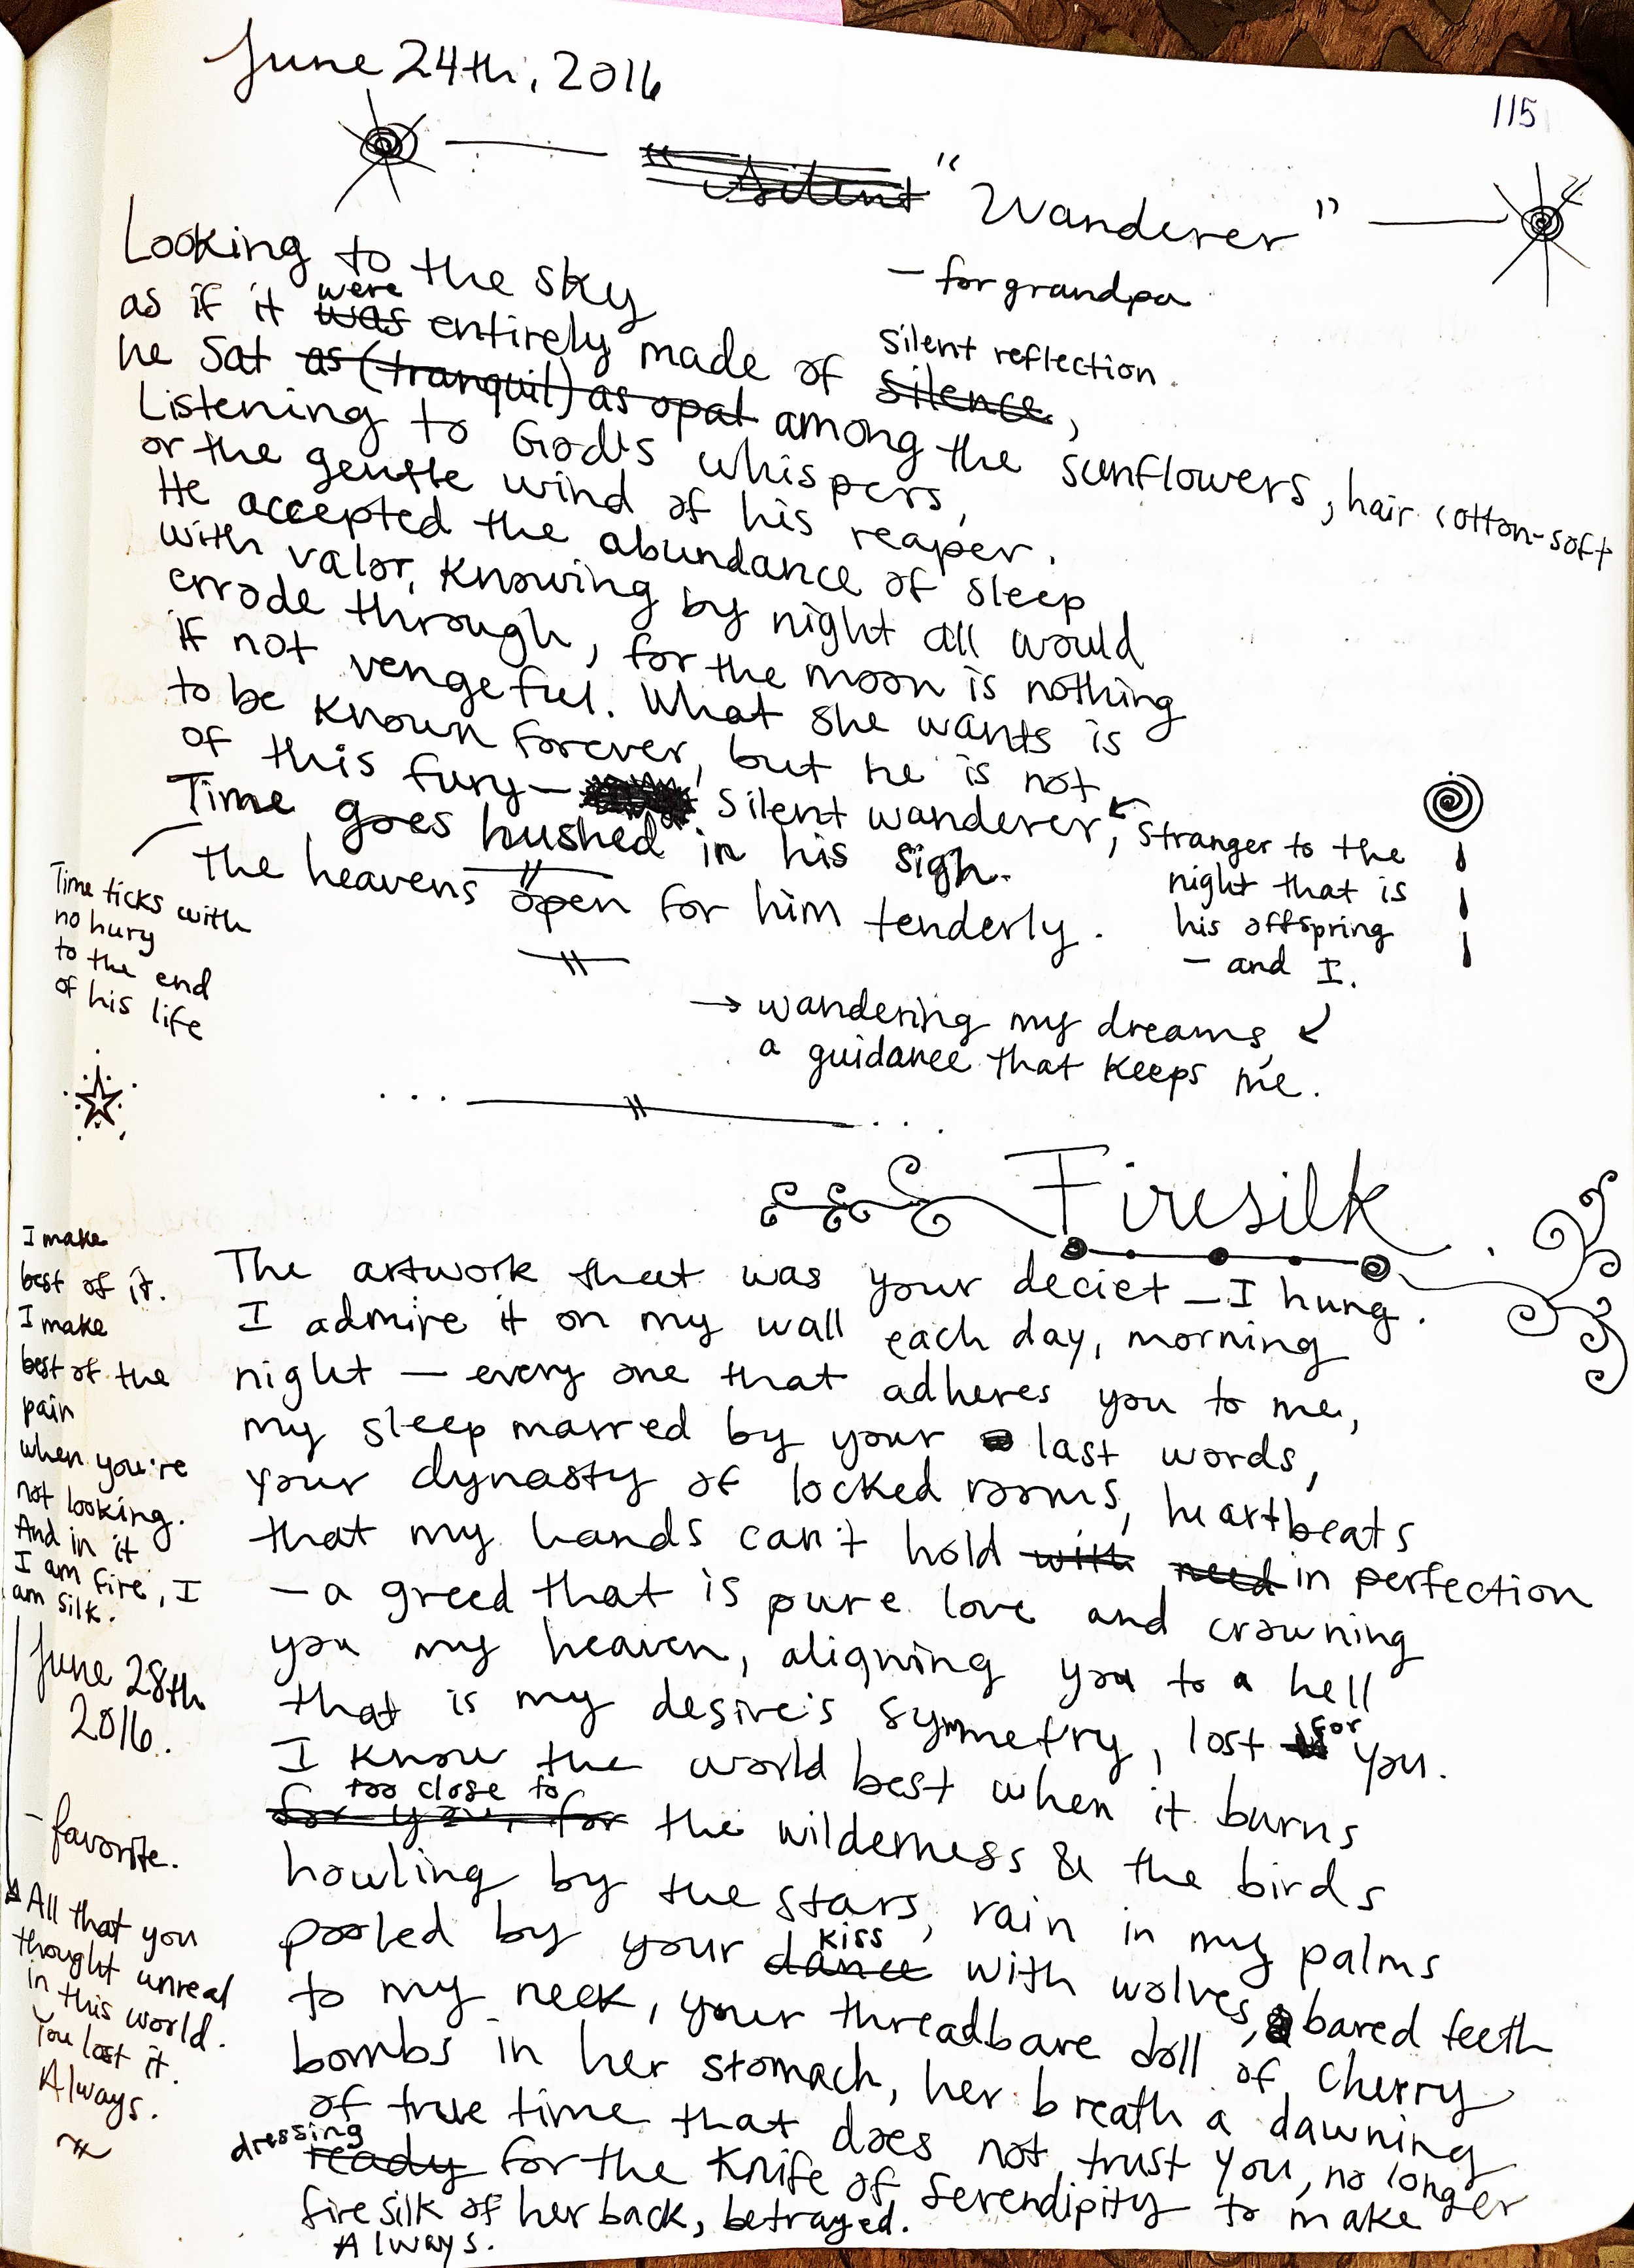 June 24th, 2016
115
"Silent "Wanderer"
— for grandpa
Looking to the sky
were
as if it was entirely made of silence,
silent reflection.
he sat as (tranquil) as opal among the sunflowers, hair cotton-soft
Listening to God's whispers,
or the gentle wind of his reaper.
He accepted the abundance of sleep
with valor, knowing by night all would
errode through, for the moon is nothing
if not vengeful. What she wants is
to be known forever, but he is not
of this fury— silent wanderer,
Stranger to the
night that is
his offspring
— and I.
Time goes hushed in his sigh.
the heavens open for him tenderly.
Time ticks with
no hury
to the end
of his life
→ wandering my dreams,
a guidance that keeps me.
Firesilk
The artwork that was your deciet — I hung.
I admire it on my wall each day, morning
night — every one that adheres you to me,
my sleep marred by your last words,
your dynasty of locked rooms, heartbeats
that my hands can't hold with need in perfection
— a greed that is pure love and crowning
you my heaven, aligning you to a hell
that is my desire's symmetry, lost for you.
I know the world best when it burns
too close to
for you, for the wilderness & the birds
howling by the stars, rain in my palms
pooled by your dance with wolves, bared teeth
kiss
to my neck, your threadbare doll of cherry
bombs in her stomach, her breath a dawning
of true time that does not trust you, no longer
dressing
ready for the knife of serendipity to make
firesilk of her back, betrayed.
Always.
I make
best of it.
I make
best of the
pain
when you're
not looking.
And in it
I am fire, I
am silk.
June 28th
2016.
— favorite.
All that you
thought unreal
in this world.
You lost it.
Always.